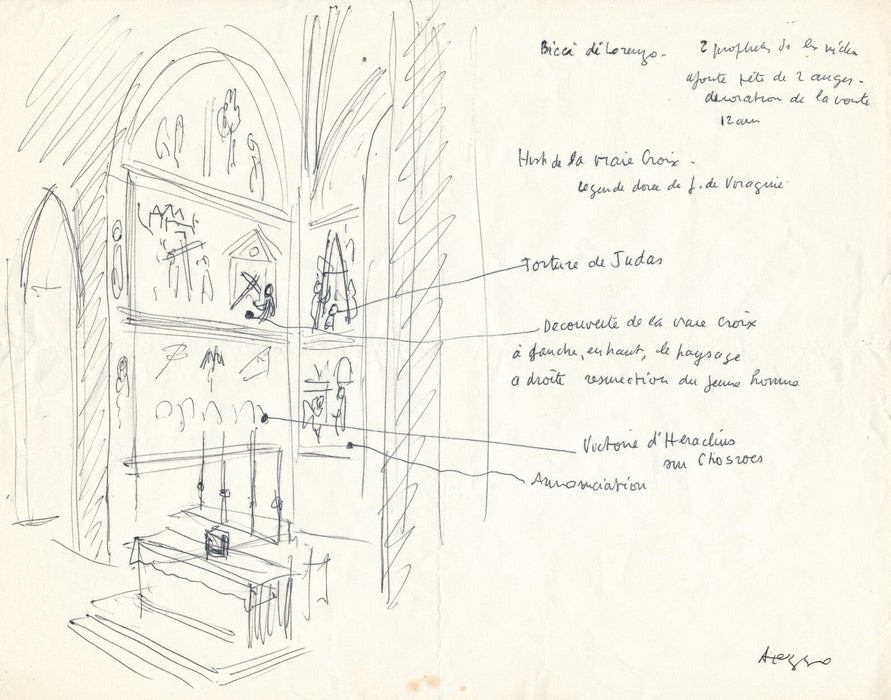 Bicci di Lorenzo. 2 prophetes ds les
ajoute tête de 2 anges.
decoration de la voute
12 ans
Hist de la vraie Croix.
Legende doree de J. de Voragine
Torture de Judas
Decouverte de la vraie Croix
à gauche, en haut, le paysage
a droite resurection du jeune homme
Victoire d'Heraclius
sur Chosroes
Annonciation
Arezzo